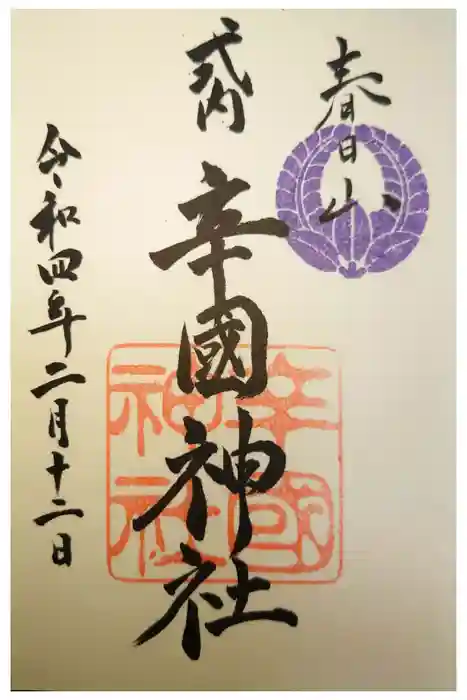 春日山
式内
辛國神社
辛國
神社
令和四年二月十二日